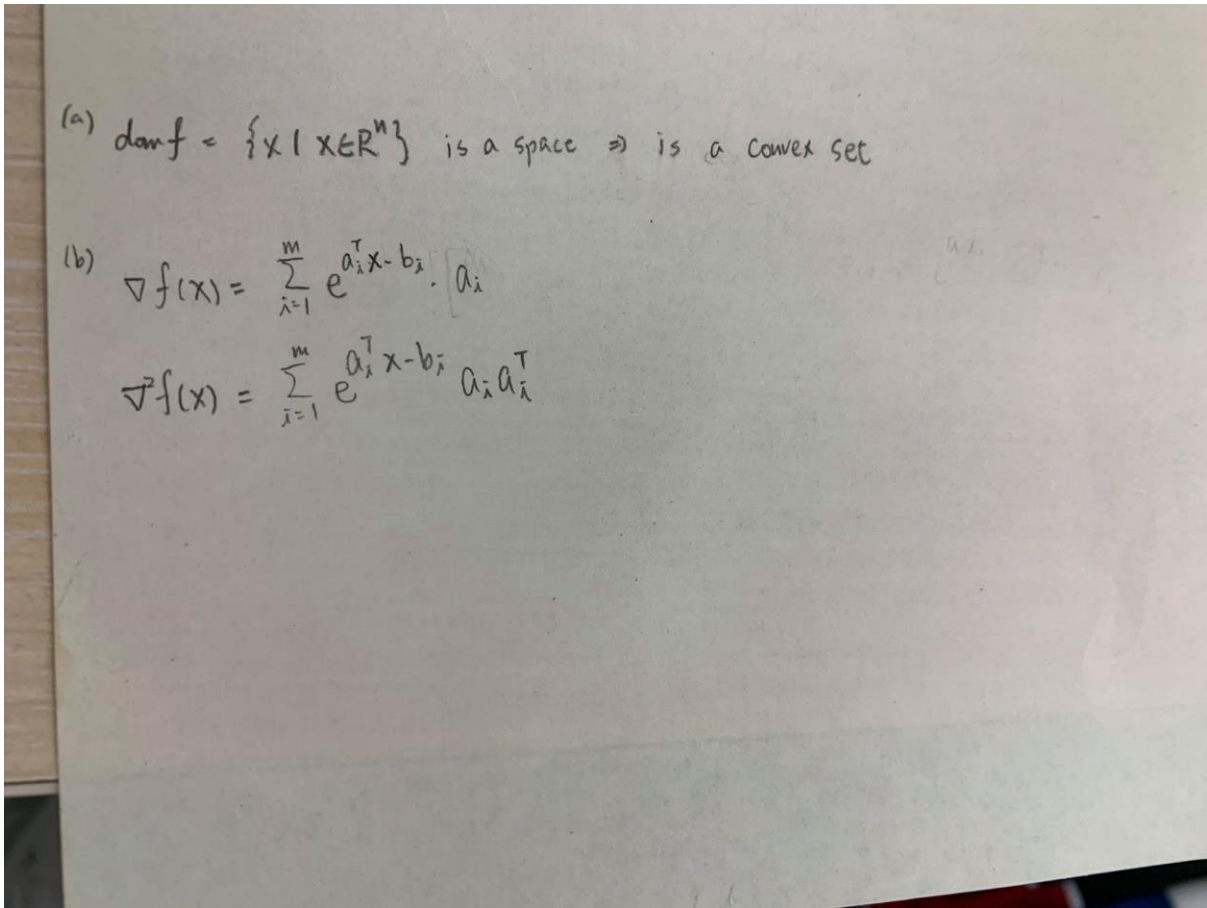 (a) domf = {x | x∈Rⁿ} is a space ⇒ is a convex set
(b) ∇f(x) = ∑_{i=1}^{m} e^{a_i^T x - b_i} · a_i
∇²f(x) = ∑_{i=1}^{m} e^{a_i^T x - b_i} a_i a_i^T